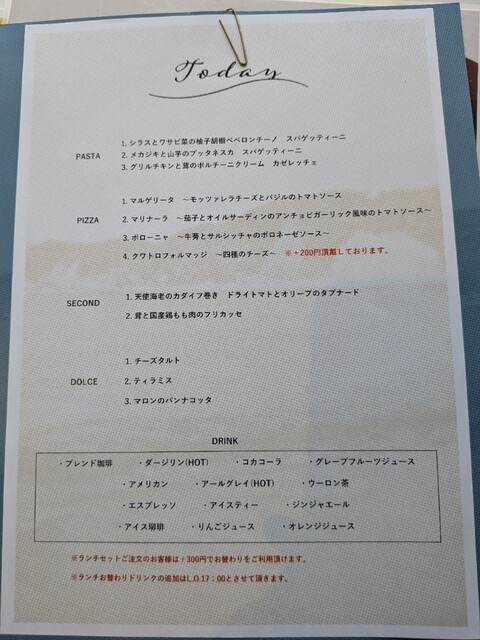 Today
PASTA
1. シラスとワサビ菜の柚子胡椒ペペロンチーノ　スパゲッティーニ
2. メカジキと山芋のプッタネスカ　スパゲッティーニ
3. グリルチキンと茸のポルチーニクリーム　カゼレッチェ
PIZZA
1. マルゲリータ　～モッツァレラチーズとバジルのトマトソース
2. マリナーラ　～茄子とオイルサーディンのアンチョビガーリック風味のトマトソース～
3. ボローニャ　～牛蒡とサルシッチャのボロネーゼソース～
4. クワトロフォルマッジ　～四種のチーズ～　※＋200円頂戴しております。
SECOND
1. 天使海老のカダイフ巻き　ドライトマトとオリーブのタプナード
2. 茸と国産鶏もも肉のフリカッセ
DOLCE
1. チーズタルト
2. ティラミス
3. マロンのパンナコッタ
DRINK
・ブレンド珈琲　・ダージリン(HOT)　・コカコーラ　・グレープフルーツジュース
・アメリカン　・アールグレイ(HOT)　・ウーロン茶
・エスプレッソ　・アイスティー　・ジンジャエール
・アイス珈琲　・りんごジュース　・オレンジジュース
※ランチセットご注文のお客様は＋300円でお替わりをご利用頂けます。
※ランチお替わりドリンクの追加はL.O.17：00とさせて頂きます。